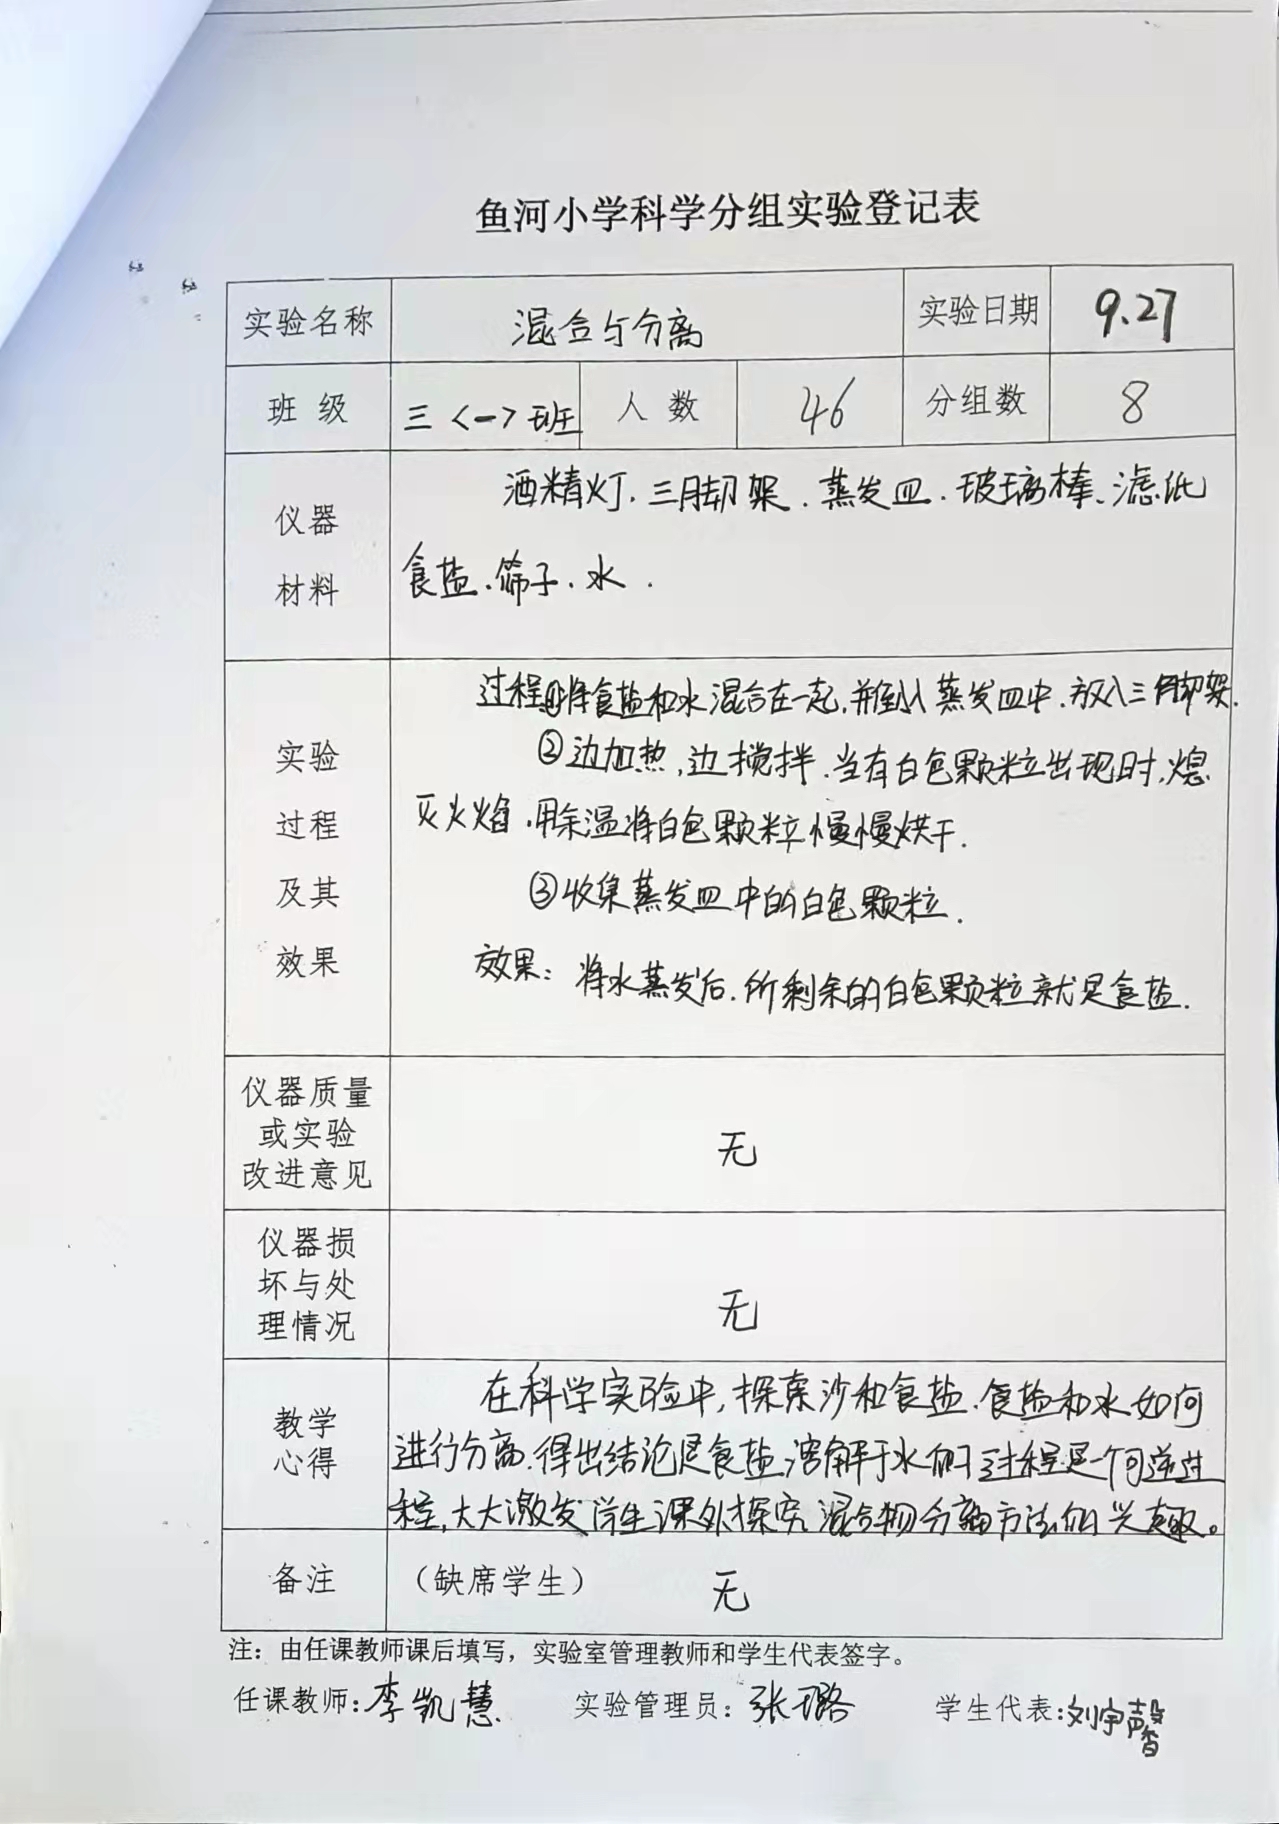 鱼河小学科学分组实验登记表
实验名称 混合与分离 实验日期 9.27
班级 三<一>班 人数 46 分组数 8
仪器
材料
酒精灯、三脚架、蒸发皿、玻璃棒、滤纸
食盐、筛子、水.
实验
过程
及其
效果
过程①将食盐和水混合在一起,并倒入蒸发皿中,放入三角脚架.
②边加热,边搅拌,当有白色颗粒出现时,熄
灭火焰,用余温将白色颗粒慢慢烘干.
③收集蒸发皿中的白色颗粒.
效果:将水蒸发后,所剩余的白色颗粒就是食盐.
仪器质量
或实验
改进意见
无
仪器损
坏与处
理情况
无
教学
心得
在科学实验中,探索沙和食盐、食盐和水如何
进行分离,得出结论是食盐溶解于水的过程是一个可逆过
程,大大激发学生课外探究混合物分离方法的兴趣。
备注 (缺席学生) 无
注:由任课教师课后填写,实验室管理教师和学生代表签字。
任课教师:李凯慧 实验管理员:张璐 学生代表:刘宇馨